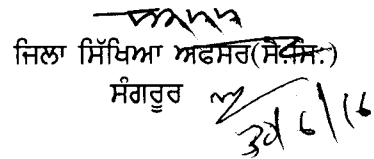 ਜਿਲਾ ਸਿੱਖਿਆ ਅਫਸਰ(ਸੈ.ਸਿ.)
ਸੰਗਰੂਰ
30/6/16